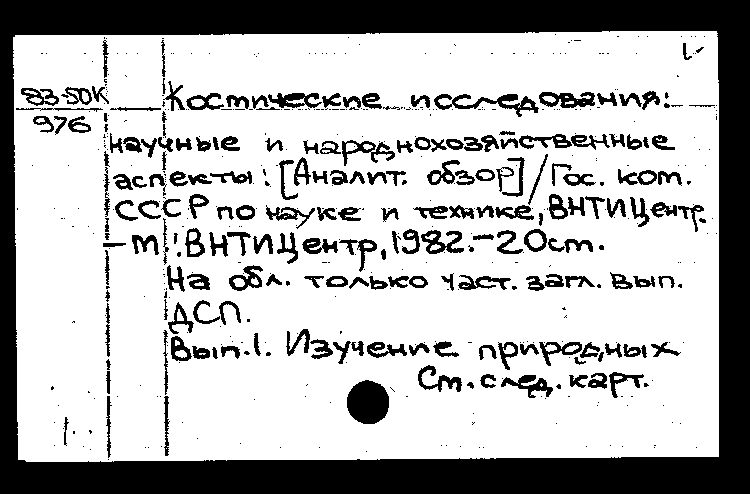 83-50К
976
Космические исследования:
научные и народнохозяйственные
аспекты: [Аналит. обзор] / Гос. ком.
СССР по науке и технике, ВНТИЦентр.
– М.: ВНТИЦентр, 1982. – 20 см.
На обл. только част. загл. вып.
ДСП.
Вып. 1. Изучение природных
См. след. карт.